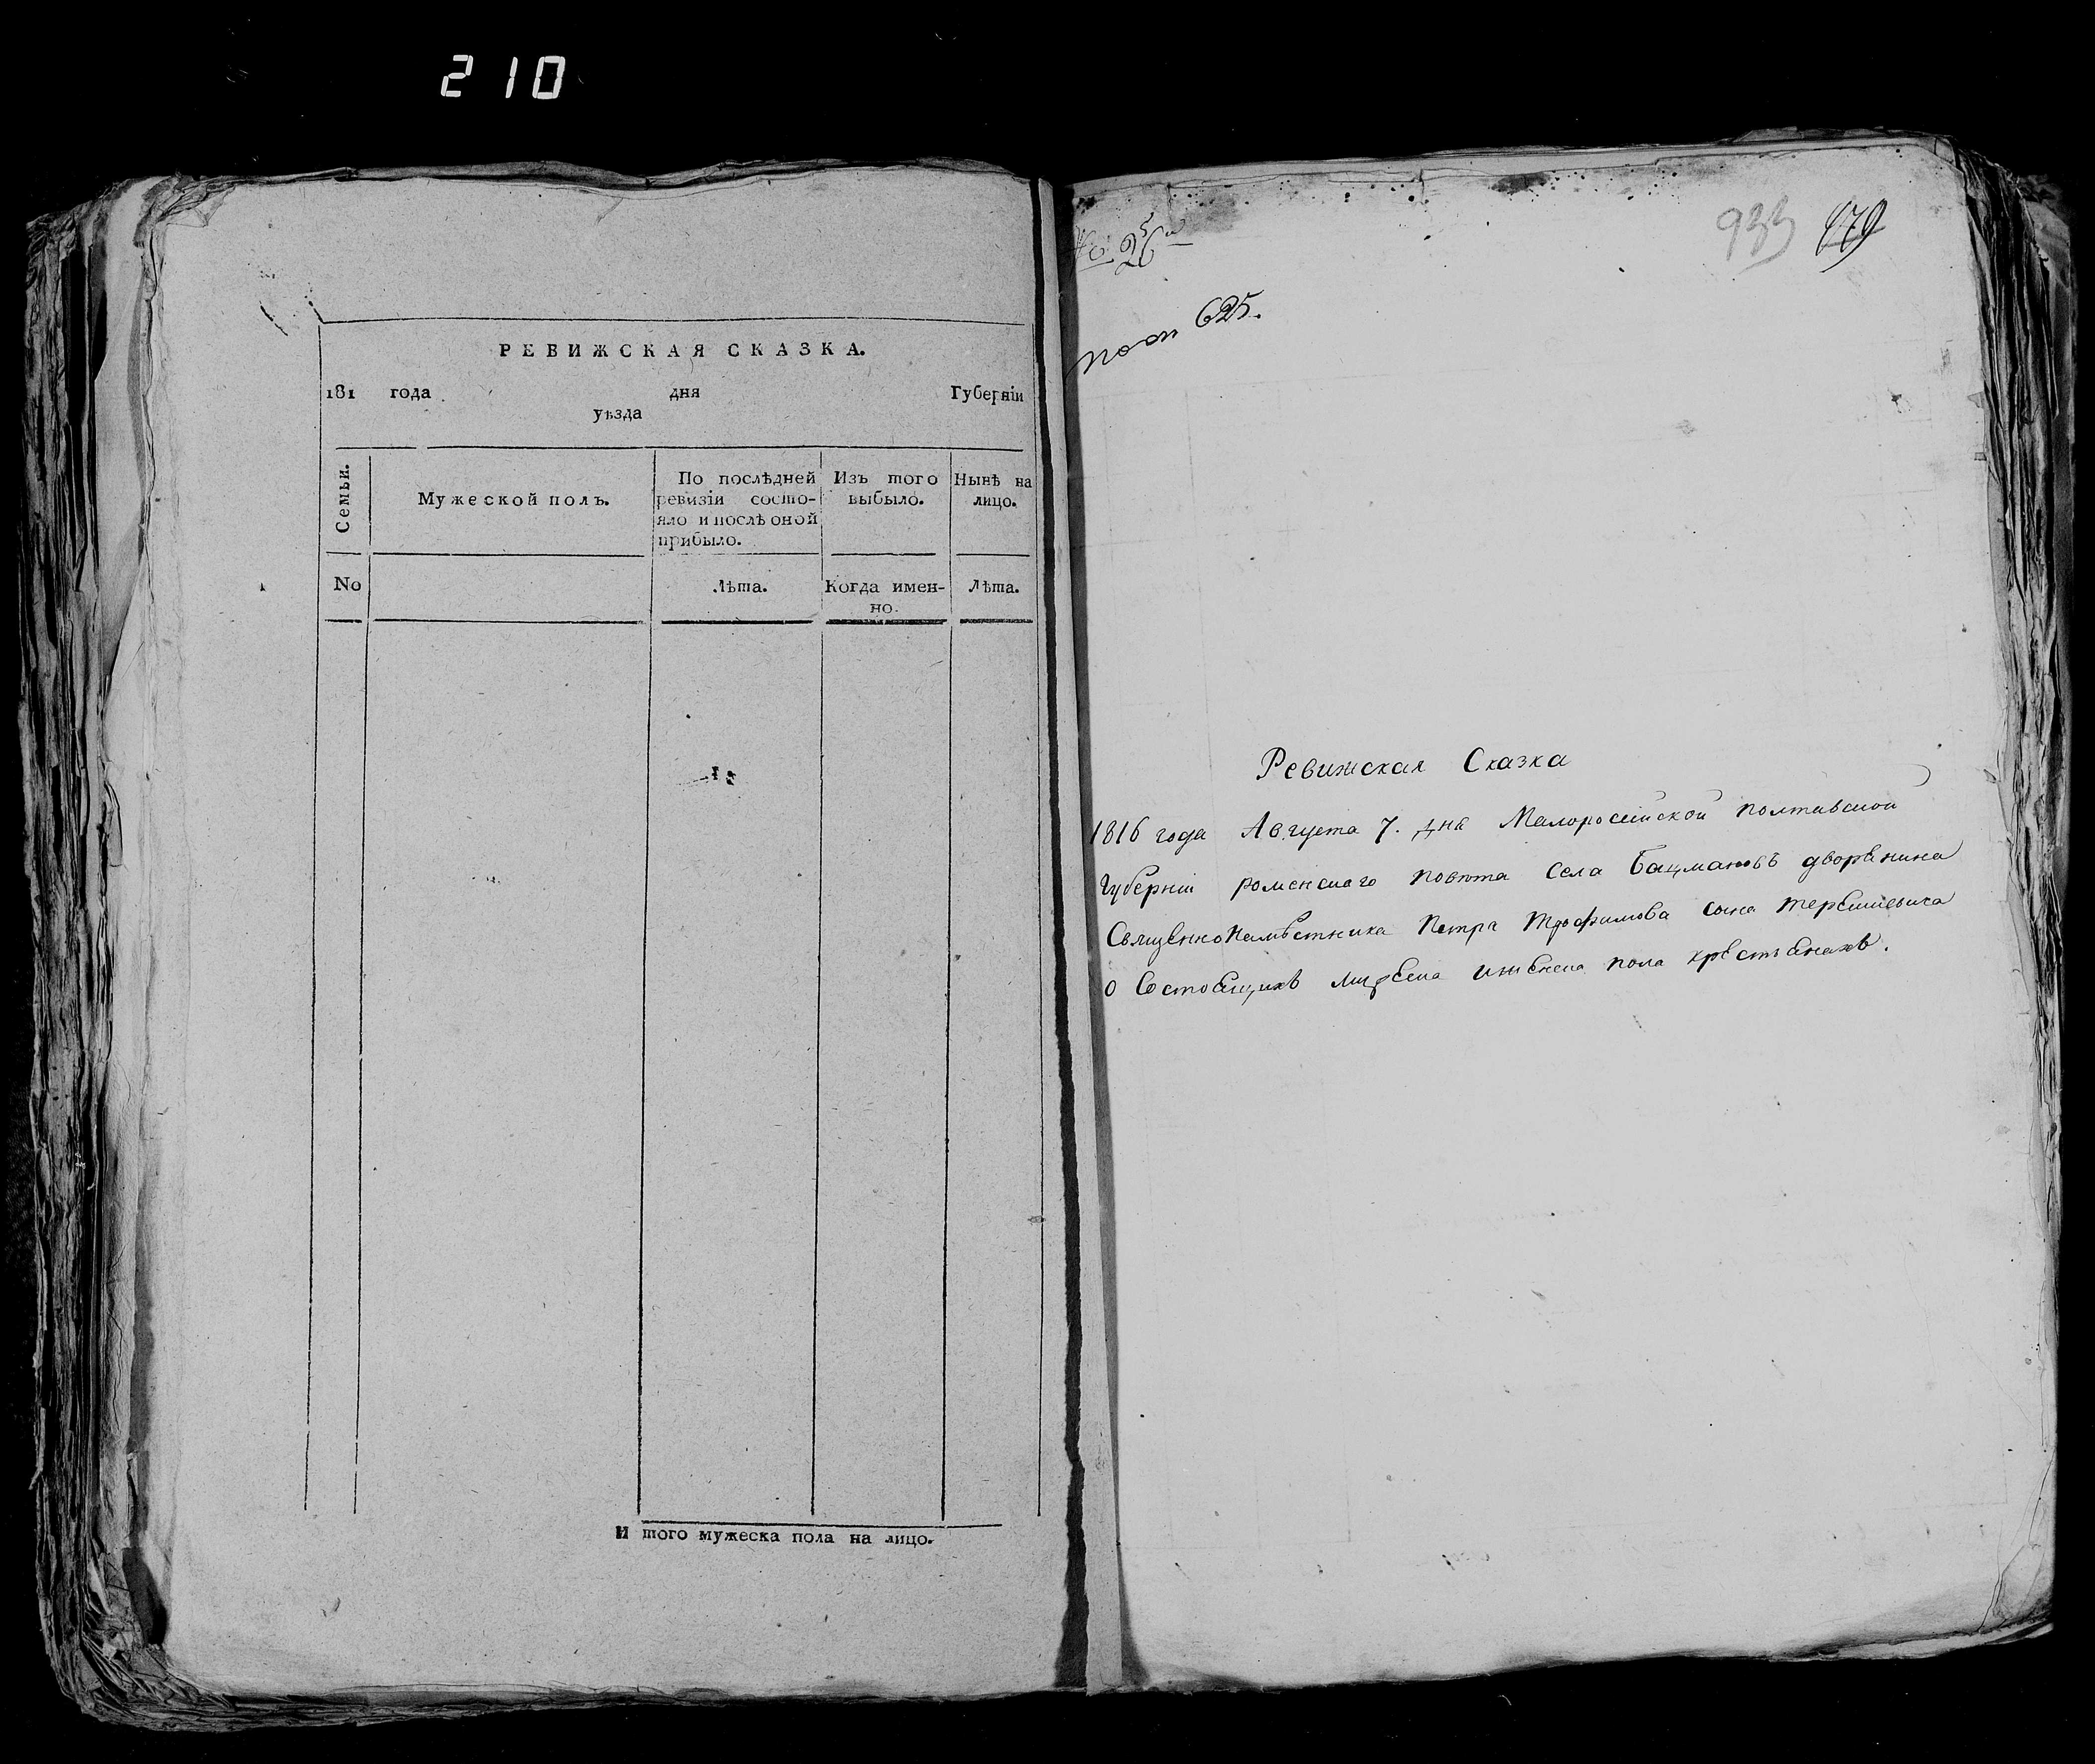 210
РЕВИЖСКАЯ СКАЗКА.
181 года дня Губерніи
уѣзда
Семьи.
Мужеской полъ.
По послѣдней ревизіи состо-
яло и послѣ оной
прибыло.
Изъ того
выбыло.
Нынѣ на
лицо.
No
Лѣта.
Когда имен-
но.
Лѣта.
И того мужеска пола на лицо.
933 179
625.
Ревижская Сказка
1816 года Августа 7. дня Малоросійской полтавской
Губерніи роменскаго повѣта села Бацмановъ дворѣнина
Священнонамѣстника Петра Трофимова сына
о Состоящихъ мужеска иженска пола крестьянахъ.